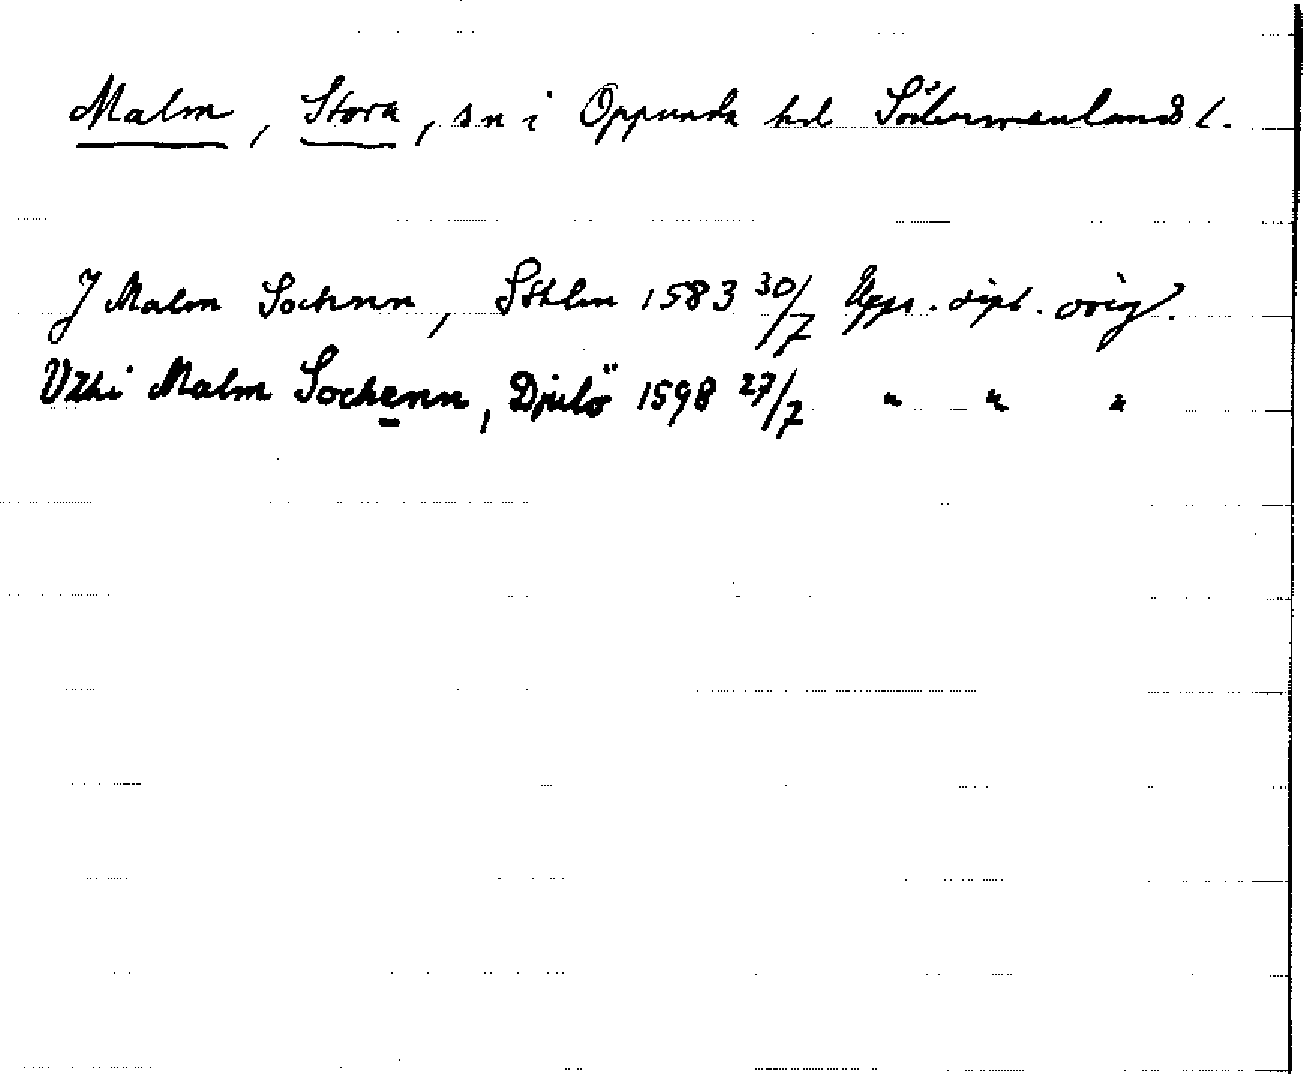 Malm, Stora, sn i Oppunda hd Södermanlands l.
J Malm Sochnn, Sthlm 1583 30/7 Upps. dipl. orig.
Uthi Malm Sochenn, Djulö 1598 27/7 " " "